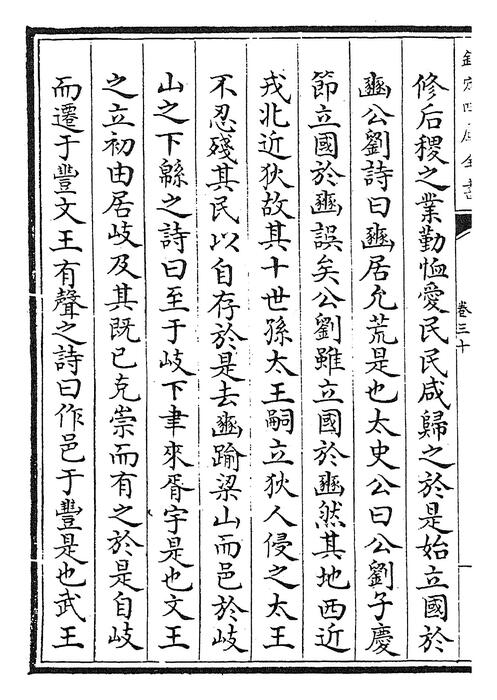 欽定四庫全書
卷三十
一
修后稷之業勤恤愛民民咸歸之於是始立國於
豳公劉詩曰豳居允荒是也太史公曰公劉子慶
節立國於豳誤矣公劉雖立國於豳然其地西近
戎北近狄故其十世孫太王嗣立狄人侵之太王
不忍殘其民以自存於是去豳踰梁山而邑於岐
山之下緜之詩曰至于岐下聿來胥宇是也文王
之立初由居岐及其既已克崇而有之於是自岐
而遷于豐文王有聲之詩曰作邑于豐是也武王